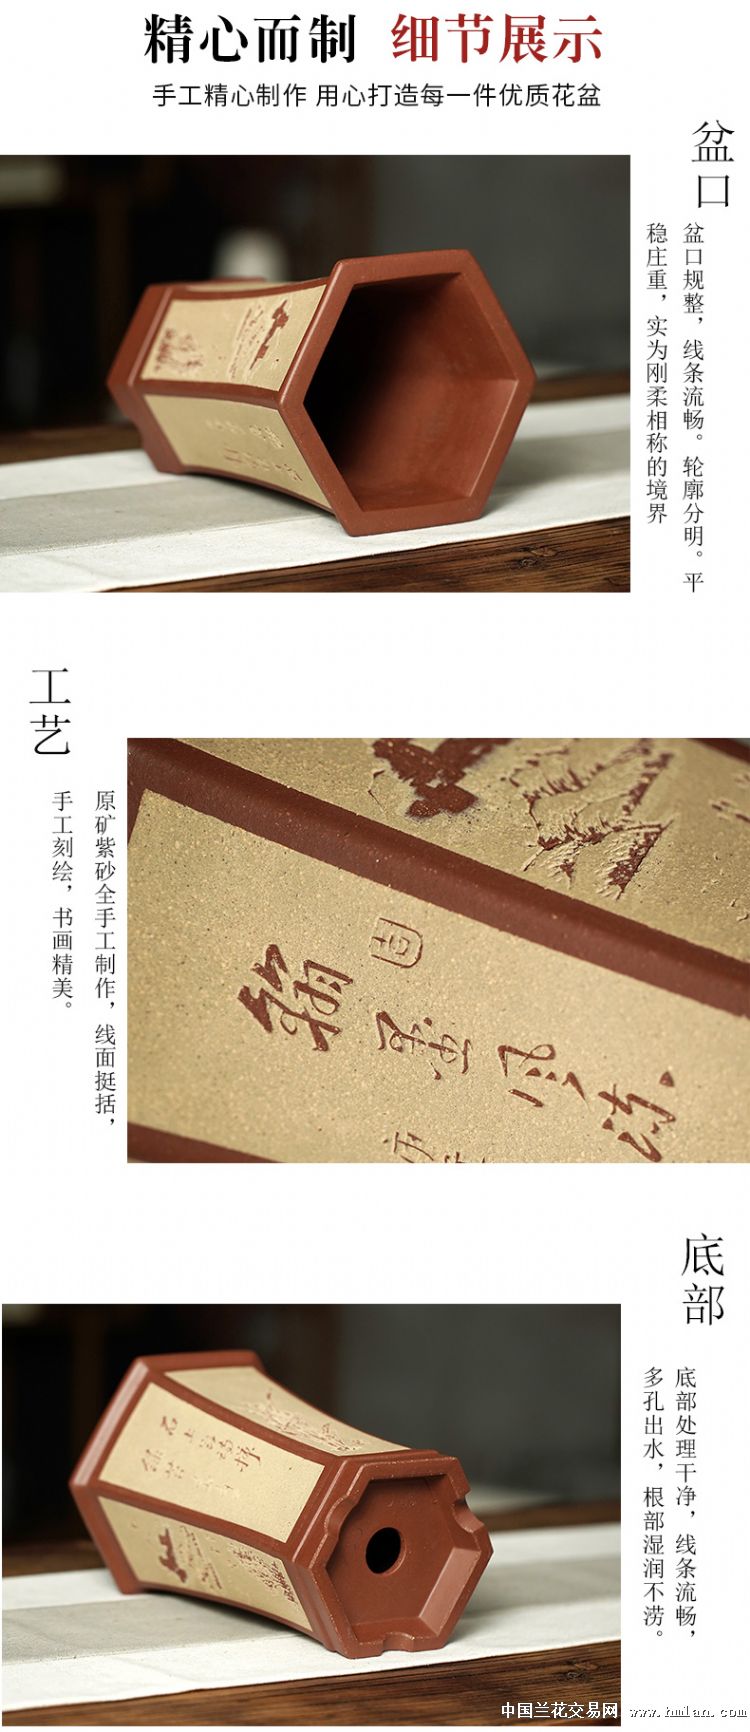 精心而制 细节展示
手工精心制作 用心打造每一件优质花盆
盆口
盆口规整，线条流畅。轮廓分明。平
稳庄重，实为刚柔相称的境界
工艺
原矿紫砂全手工制作，线面挺括，
手工刻绘，书画精美。
吉
翰墨风流
底部
底部处理干净，线条流畅，
多孔出水，根部湿润不涝。
中国兰花交易网 www.hmlan.com